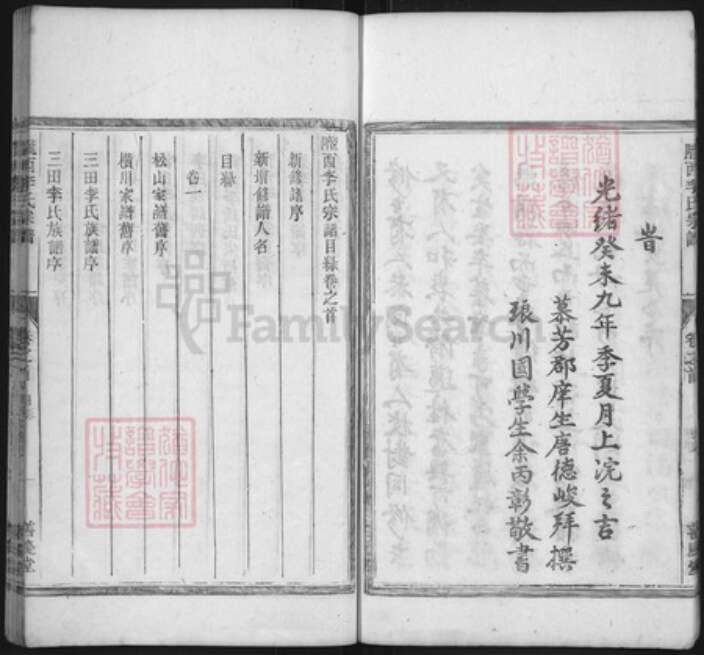 旹
光緒癸未九年季夏月上浣之吉
慕芳郡庠生唐德峻拜撰
琅川國學生余丙彰敬書
隴西李氏宗譜
卷之首
隴西李氏宗譜目錄卷之首
新修譜序
新增修譜人名
目錄
卷一
松山家譜舊序
橫川家譜舊序
三田李氏族譜序
三田李氏族譜序
隴西李氏宗譜
卷之首
善慶堂
FamilySearch